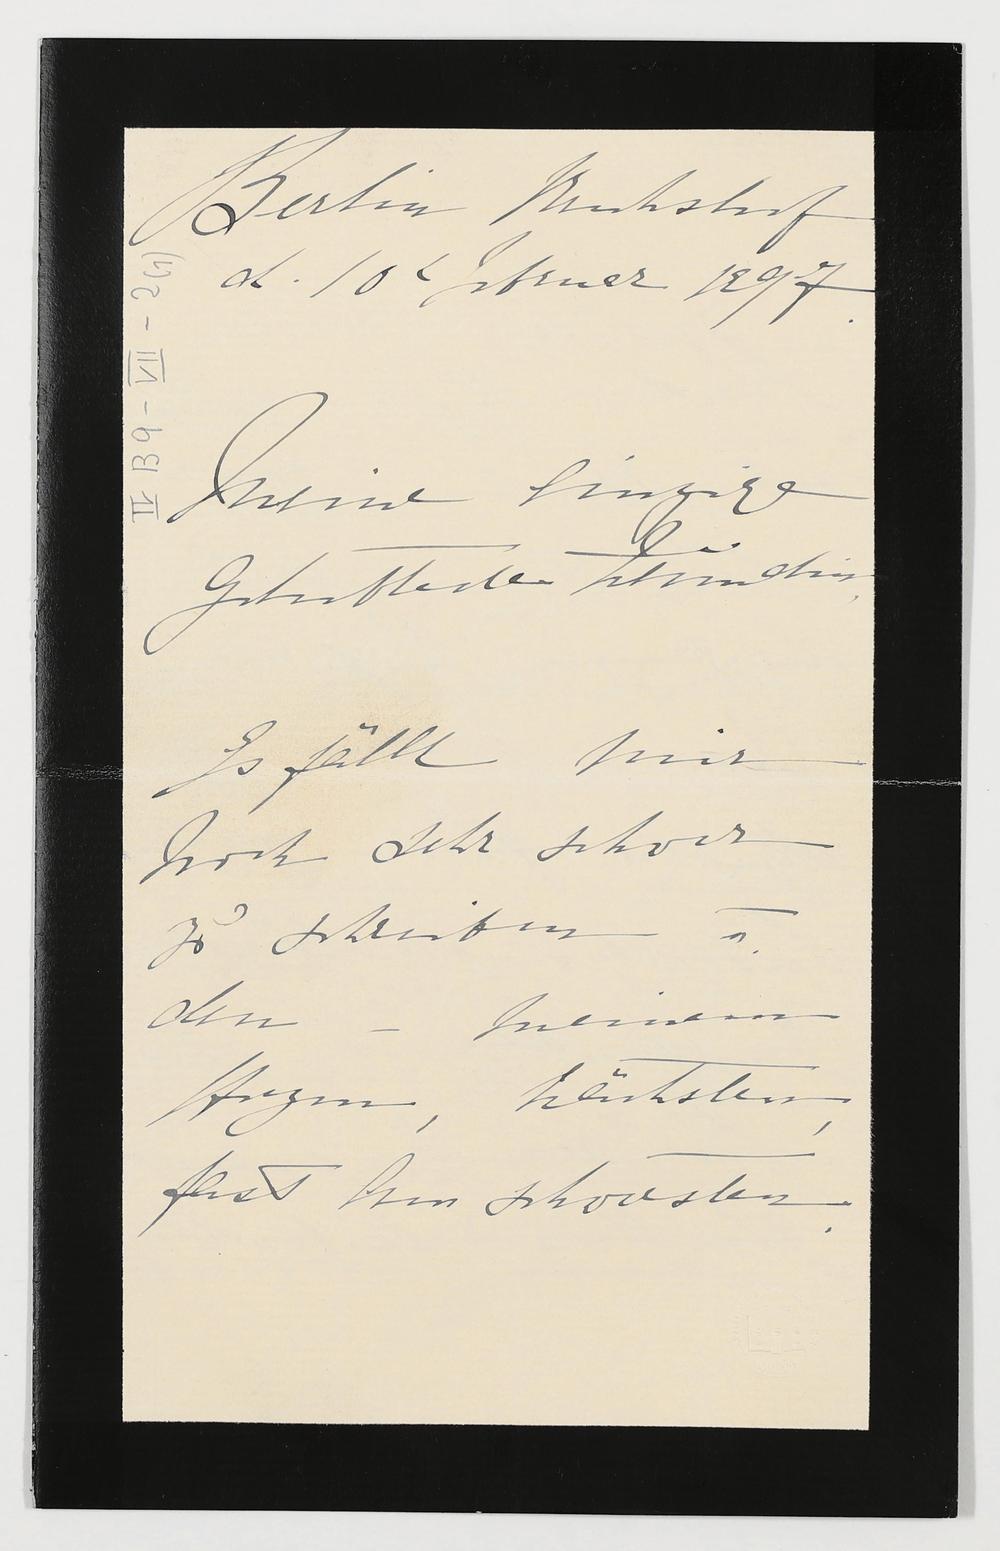 Berlin Reichshof
d. 10t Februar 1897.
Meine einzige
Geliebteste Freundin,
Es fällt mir
noch sehr schwer
zu schreiben u.
den – meinem
Herzen, nächsten,
fast am schwersten.
II B9 – VII – 2(1)